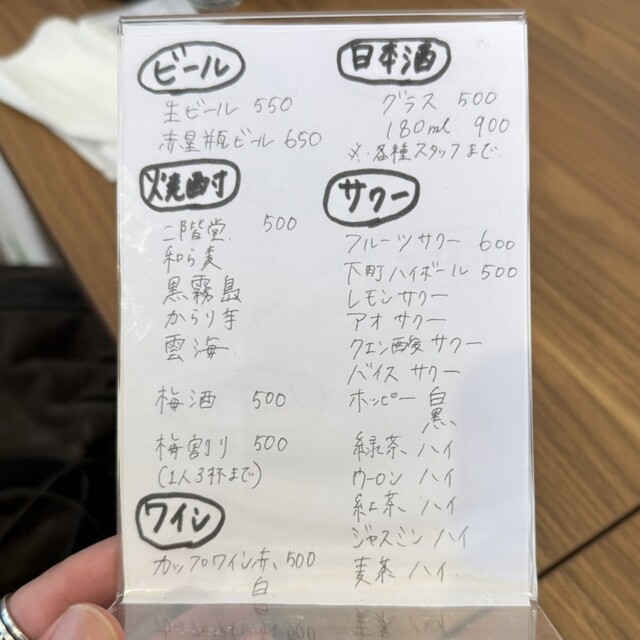 ビール
生ビール 550
赤星瓶ビール 650
焼酎
二階堂 500
和ら麦
黒霧島
からり芋
雲海
梅酒 500
梅割り 500
(1人3杯まで)
ワイン
カップワイン赤、500
白
日本酒
グラス 500
180ml 900
※各種スタッフまで
サワー
フルーツサワー 600
下町ハイボール 500
レモンサワー
アオサワー
クエン酸サワー
バイスサワー
ホッピー 白
黒、
緑茶ハイ
ウーロンハイ
紅茶ハイ
ジャスミンハイ
麦茶ハイ